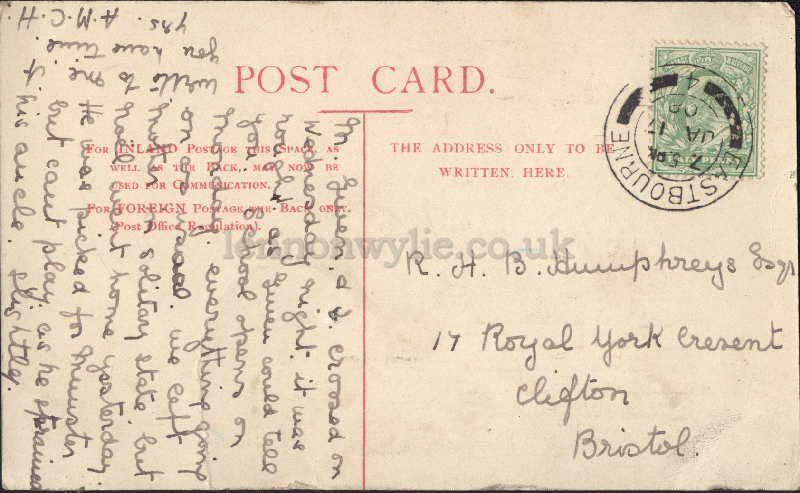 POST CARD.
For INLAND Postage this Space, as
well as the Back, may now be
used for Communication.
For FOREIGN Postage the Back only.
(Post Office Regulation).
THE ADDRESS ONLY TO BE
WRITTEN HERE
EASTBOURNE
7.5 PM
JA 17
09
4
R. H. B. Humphreys Esqr
17 Royal York Cresent
Clifton
Bristol.
crossed on
Wednesday night. it was
rough! as Gwen could tell
you. School opens on
Thursday. everything going
on as usual. we left
Mother in solitary state but
Niall went home yesterday.
He was picked for Munster
but cant play as he sprained
his ancle slightly.
write to me if
you have time.
yrs.
A.M.C.H.
lennonwylie.co.uk